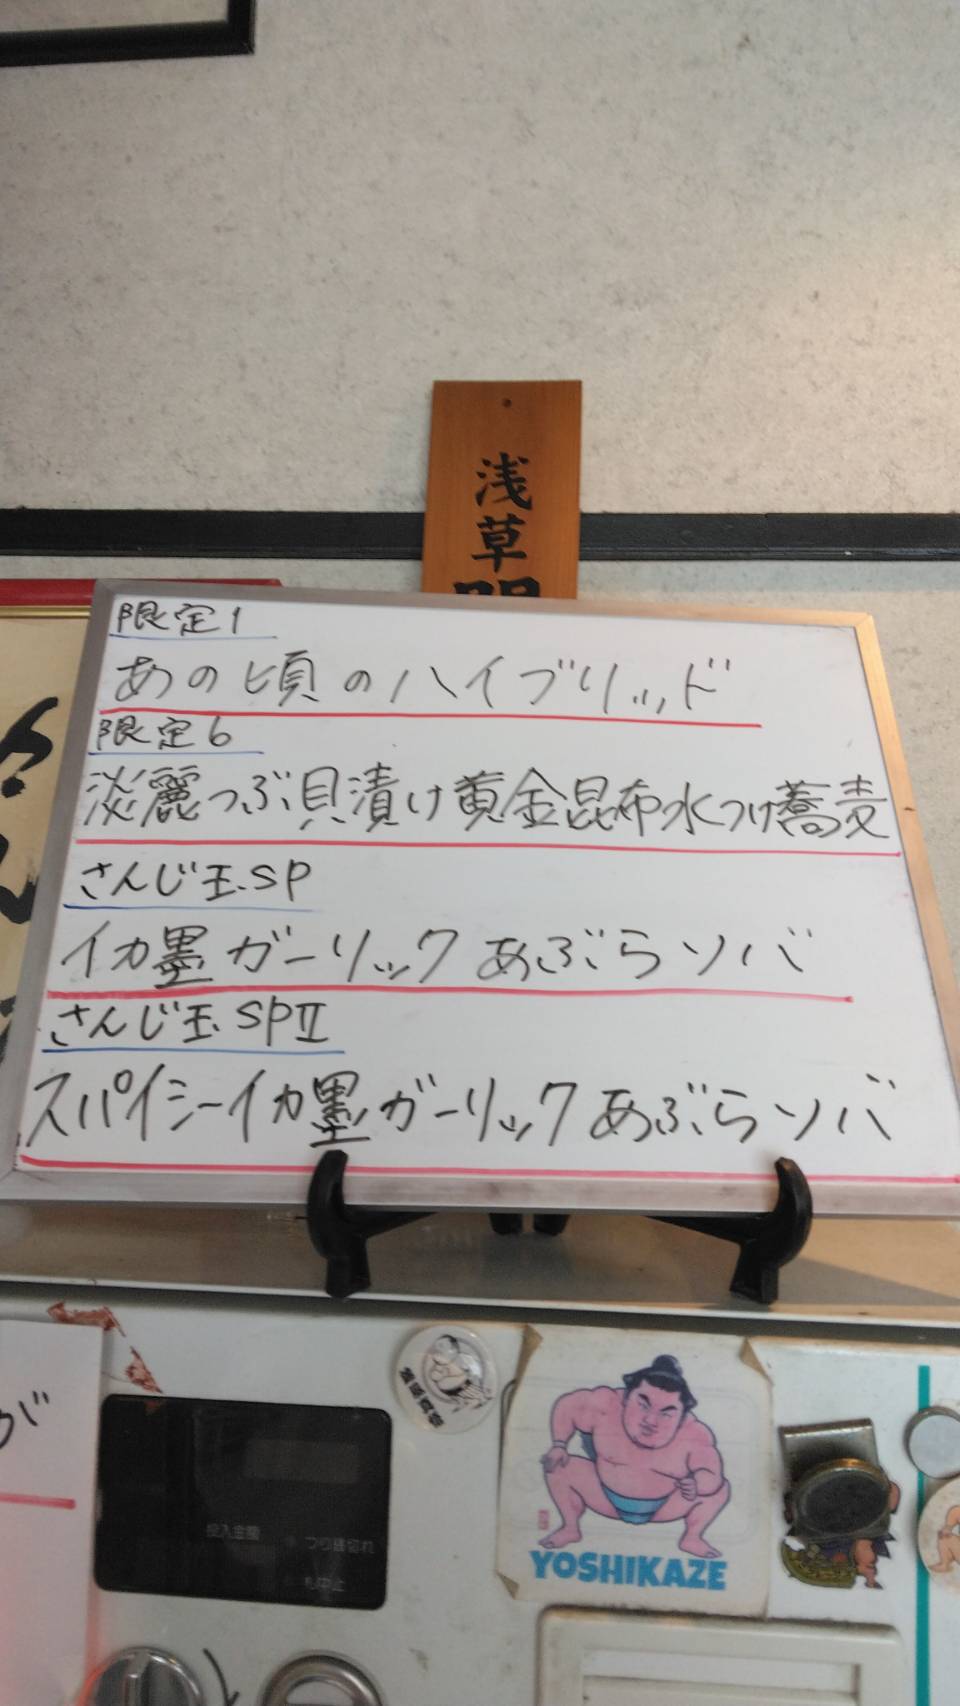 浅草
限定1
あの頃のハイブリッド
限定6
淡麗つぶ貝漬け黄金昆布水つけ蕎麦
さんじ玉SP
イカ墨ガーリックあぶらソバ
さんじ玉SPⅡ
スパイシーイカ墨ガーリックあぶらソバ
投入金額
つり銭切れ
札中止
YOSHIKAZE